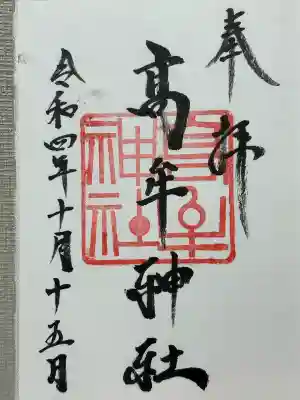 奉拝
高牟神社
令和四年十月十五日
高牟神社